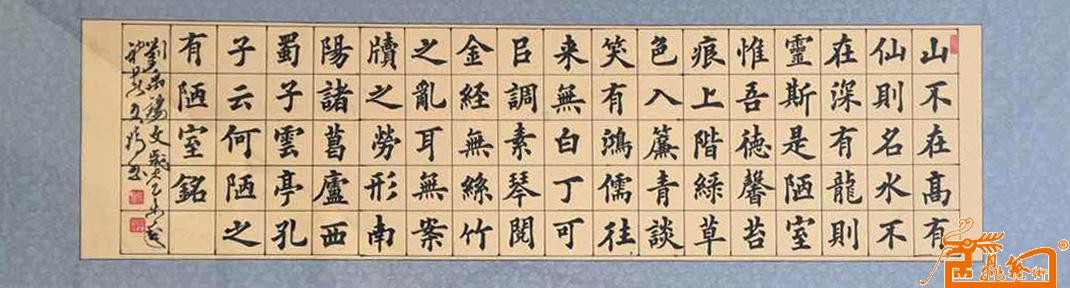 山不在高有
仙則名水不
在深有龍則
靈斯是陋室
惟吾德馨苔
痕上階綠草
色入簾青談
笑有鴻儒往
来無白丁可
㠯調素琴閱
金経無絲竹
之亂耳無案
牘之勞形南
陽諸葛廬西
蜀子雲亭孔
子云何陋之
有陋室銘
劉禹錫文